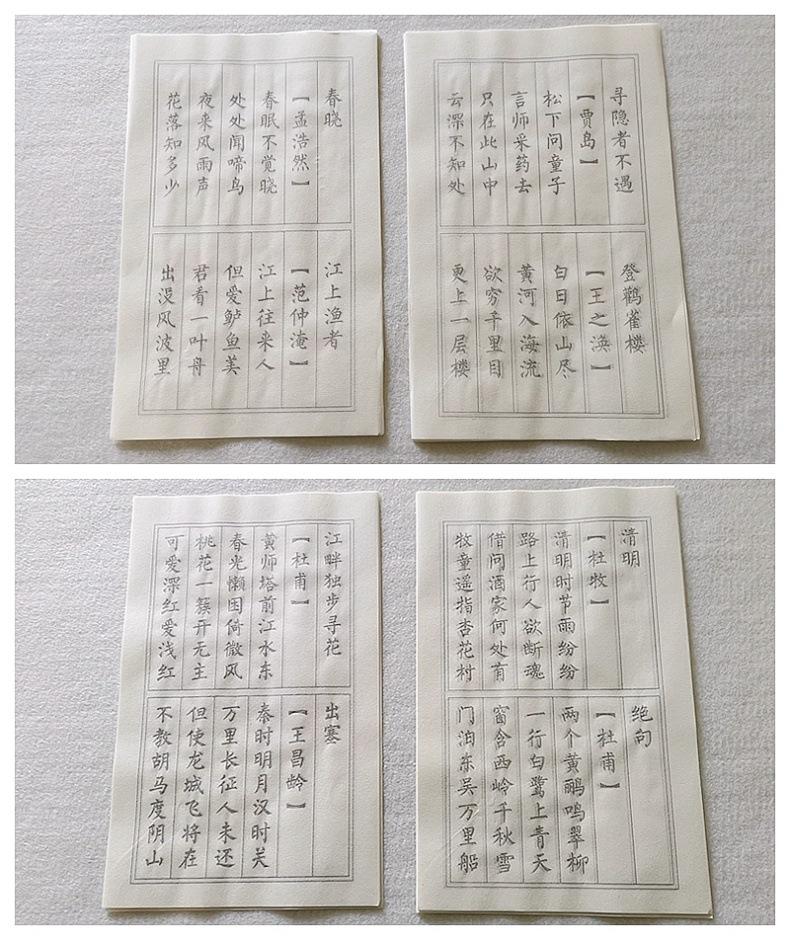 春晓
【孟浩然】
春眠不觉晓
处处闻啼鸟
夜来风雨声
花落知多少
江上渔者
【范仲淹】
江上往来人
但爱鲈鱼美
君看一叶舟
出没风波里
寻隐者不遇
【贾岛】
松下问童子
言师采药去
只在此山中
云深不知处
登鹳雀楼
【王之涣】
白日依山尽
黄河入海流
欲穷千里目
更上一层楼
江畔独步寻花
【杜甫】
黄师塔前江水东
春光懒困倚微风
桃花一簇开无主
可爱深红爱浅红
出塞
【王昌龄】
秦时明月汉时关
万里长征人未还
但使龙城飞将在
不教胡马度阴山
清明
【杜牧】
清明时节雨纷纷
路上行人欲断魂
借问酒家何处有
牧童遥指杏花村
绝句
【杜甫】
两个黄鹂鸣翠柳
一行白鹭上青天
窗含西岭千秋雪
门泊东吴万里船